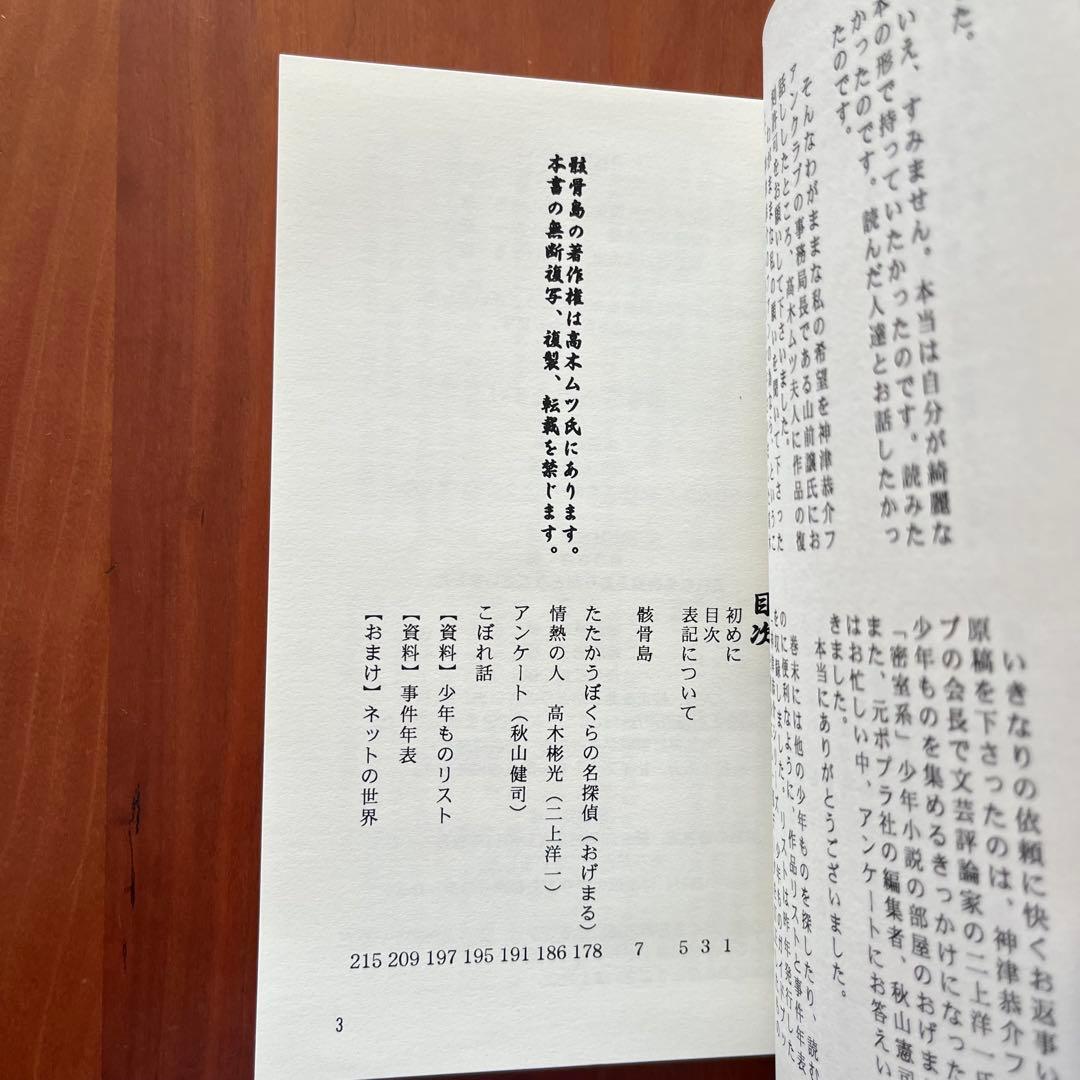 た。
いえ、すみません。本当は自分が綺麗な
本の形で持っていたかったのです。読みた
かったのです。読んだ人達とお話したかっ
たのです。
そんなわがままな私の希望を神津恭介フ
ァンクラブの事務局長である山前譲氏にお
話ししたところ、高木ムツ夫人に作品の復
刻許可をお願いして下さいました。
わがままな私の願いを聞いて下さった
いきなりの依頼に快くお返事い
原稿を下さったのは、神津恭介フ
ブの会長で文芸評論家の二上洋一氏
少年ものを集めるきっかけになった
「密室系」少年小説の部屋のおげま
また、元ポプラ社の編集者、秋山憲司
はお忙しい中、アンケートにお答えい
きました。
本当にありがとうございました。
巻末には他の少年ものを探したり、読む
のに便利なように、作品リストと事件年表
を収録しました。リストは昨年発行した
骸骨島の著作権は高木ムツ氏にあります。
本書の無断複写、複製、転載を禁じます。
目次
初めに 1
目次 3
表記について 5
骸骨島 7
たたかうぼくらの名探偵（おげまる） 178
情熱の人 高木彬光（二上洋一） 186
アンケート（秋山健司） 191
こぼれ話 195
【資料】少年ものリスト 197
【資料】事件年表 209
【おまけ】ネットの世界 215
3